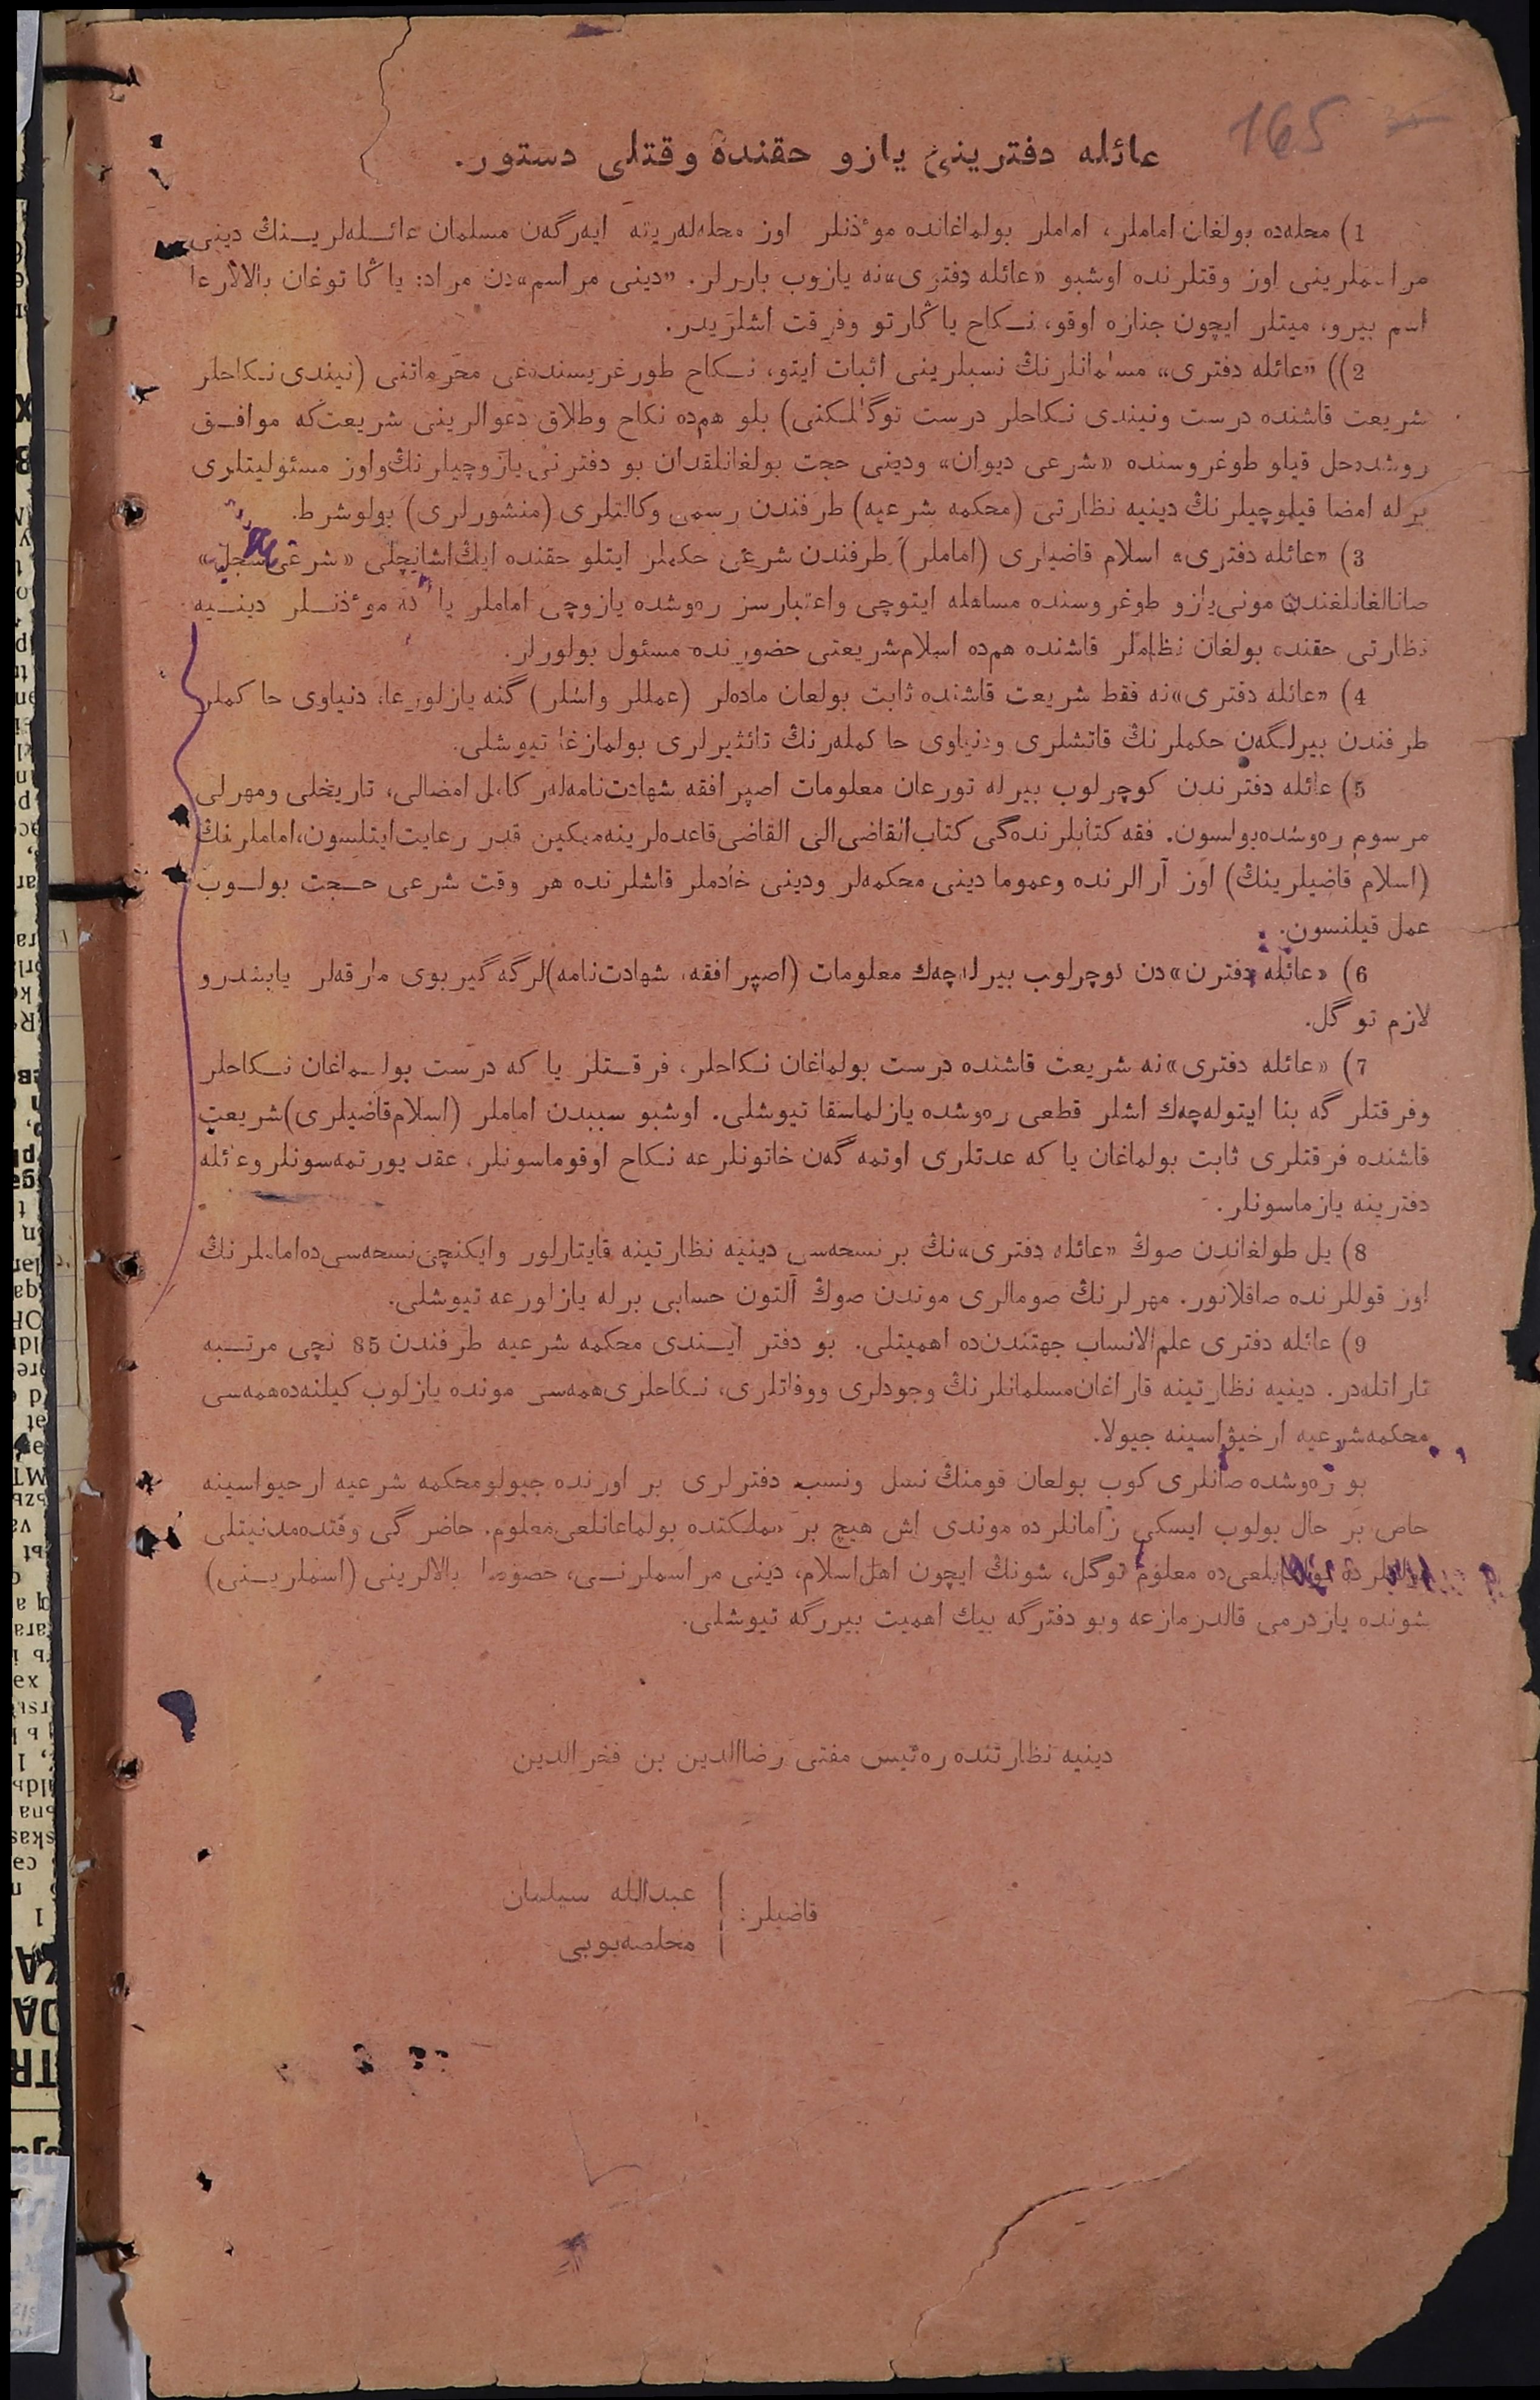 165
عائله دفترینی یازو حقنده وقتلی دستور.
1) محله‌ده بولغان اماملر، اماملر بولماغانده موٴذنلر اوز محله‌لەرینه ایەرگەن مسلمان عائـله‌لریـنڭ دینی
مراسملرینی اوز وقتلرنده اوشبو «عائله دفتری»نه یازوب باررلر. «دینی مراسم»دن مراد: یاڭا توغان بالالارعا
اسم بیرو، میتلر ایچون جنازه اوقو، نـکاح یاڭارتو وفرقت اشلریدر.
2)) «عائله دفتری» مسلمانلرنڭ نسبلرینی اثبات ایتو، نـکاح طورغریسنده‌غی محرماتنی (نیندی نـکاحلر
شریعت قاشنده درست ونیندی نـکاحلر درست توگلـکنی) بلو هم‌ده نکاح وطلاق دعوالرینی شریعت‌که موافـق
روشده‌حل قیلو طوغروسنده «شرعی دیوان» ودینی حجت بولغانلقدان بو دفترنی یازوچیلرنڭ واوز مسئولیتلری
برله امضا قیلوچیلرنڭ دینیه نظارتی (محکمه شرعیه) طرفندن رسمی وکالتلری (منشورلری) بولوشرط.
3) «عائله دفتری» اسلام قاضیلری (اماملر) طرفندن شرعی حکملر ایتلو حقنده ایڭ اشانچلی «شرعی سجل»
صانالغانلغندن مونی یازو طوغروسنده مساهله ایتوچی واعتبارسز رەوشده یازوچی اماملر یا که موٴذنـلر دینـیه
نظارتی حقنده بولغان نظاملر قاشنده هم‌ده اسلام شریعتی حضورنده مسئول بولورلر.
4) «عائله دفتری»نه فقط شریعت قاشنده ثابت بولعان ماده‌لر (عمللر واشلر) گنه یازلورعا، دنیاوی حاکملر
طرفندن بیرلـگەن حکملرنڭ قاتشلری ودنیاوی حاکمله‌رنڭ تاثیرلری بولمازغا تیوشلی.
5) عائله دفترندن کوچرلوب بیرله تورعان معلومات اصپرافقه شهادت‌نامه‌لەر کامل امضالی، تاریخلی ومهرلی
مرسوم رەوشده‌بولسون. فقه کتابلرنده‌گی کتاب القاضی الی القاضی قاعده‌لرینه ممکین قدر رعایت ایتلسون، اماملرنڭ
(اسلام قاضیلرینڭ) اوز آرالرنده وعموما دینی محکمه‌لر ودینی خادملر قاشلرنده هر وقت شرعی حـجت بولـوب
عمل قیلنسون.
6) «عائله دفترن»دن کوچرلوب بیرله‌چەك معلومات (اصپرافقه، شهادت‌نامه)لرگه گیربوی مارقه‌لر یابشدرو
لازم توگل.
7) «عائله دفتری»نه شریعت قاشنده درست بولماغان نـکاحلر، فرقـتلر یا که درست بولـماغان نـکاحلر
وفرقتلرگه بنا ایتوله‌چەك اشلر قطعی رەوشده یازلماسقا تیوشلی. اوشبو سببدن اماملر (اسلام قاضیلری) شریعت
قاشنده فرقتلری ثابت بولماغان یا که عدتلری اوتمه‌گەن خاتونلرعه نـکاح اوقوماسونلر، عقد یورتمه‌سونلر وعائله
دفترینه یازماسونلر.
8) یل طولغاندن صوڭ «عائله دفتری»نڭ برنسحه‌سی دینیه نظارتینه قایتارلور وایکنچی نسحه‌سی‌ده‌اماملرنڭ
اوز قوللرنده صاقلانور. مهرلرنڭ صومالری موندن صوڭ آلتون حسابی برله یازلورعه تیوشلی.
9) عائله دفتری علم‌الانساب جهتندن‌ده اهمیتلی. بو دفتر ایـندی محکمه شرعیه طرفندن 85 نچی مرتـبه
تاراتله‌در. دینیه نظارتینه قاراغان مسلمانلرنڭ وجودلری ووفاتلری، نـکاحلری همه‌سی مونده یازلوب کیلنه‌ده‌همه‌سی
محکمه‌شرعیه ارخیواسینه جیولا.
بو رەوشده صانلری کوب بولعان قومنڭ نسل ونسب دفترلری بر اورنده جیولو محکمه شرعیه ارحیواسینه
حاص بر حال بولوب ایسکی زامانلرده موندی اش هیچ بر مملـکتده بولماعانلعی معلوم. حاضرگی وقتده‌مدنیتلی
معلوم توگل، شونڭ ایچون اهل اسلام، دینی مراسملرنـی، خصوصا بالالرینی (اسملریـنی)
شونده یازدرمی قالدرمازعه وبو دفترگه بیك اهمیت بیررگه تیوشلی.
دینیه نظارتنده رەئیس مفتی رضاالدین بن فخرالدین
قاضیلر:
عبدالله سیلمان
مخلصه‌بوبی